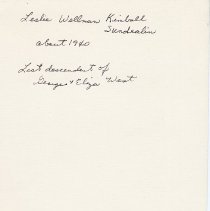 Leslie Wellman Kimball
Sundralin
about 1940
Last descendent of
George & Eliza West